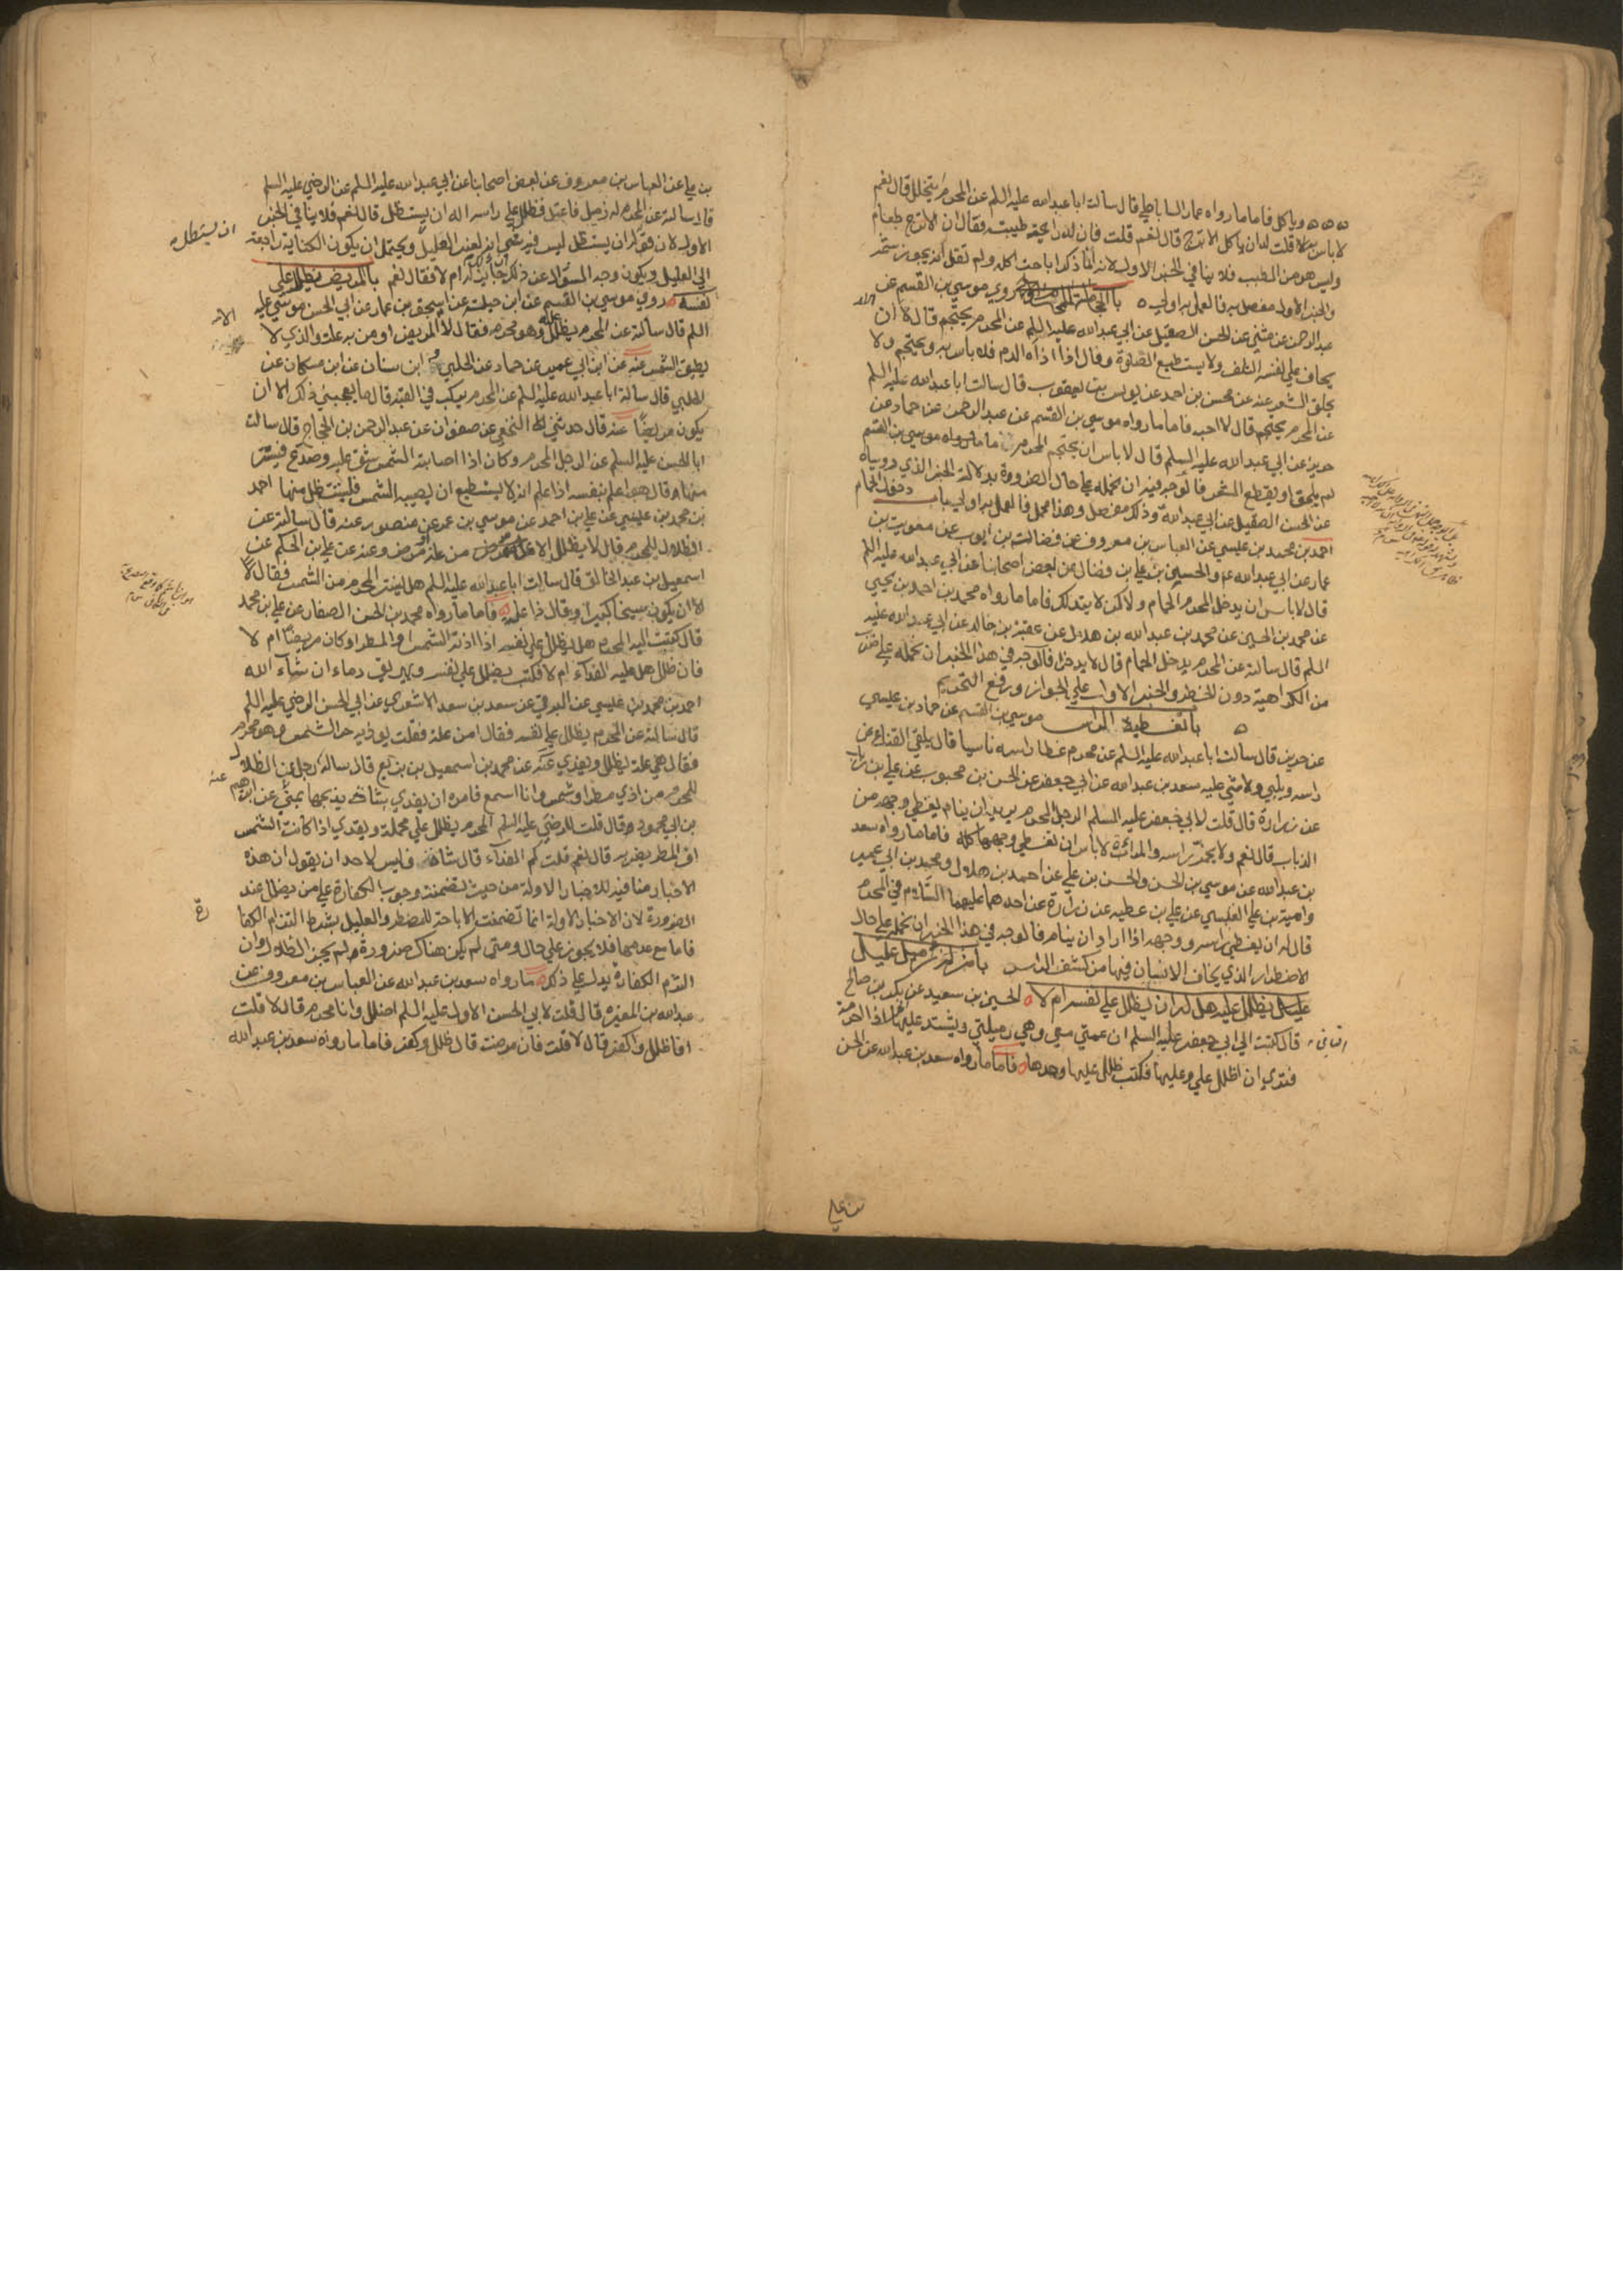 وياكل فاما ما رواه عمار الساباطي قال سالت ابا عبدالله عليه السلم عن المحرم يتخلل قال نعم
لا باس به قلت له ان ياكل الاترج قال نعم قلت فان له رايحة طيبة فقال ان الاترج طعام
وليس هو من الطيب فلا ينافي الخبر الاول لانه انما ذكر اباحة اكله ولم يقل انه يجوز شمه
والخبر الاول مفصل به فالعمل به اولى باب الحجامة للمحرم روى موسى بن القسم عن
عبد الرحمن عن مثنى عن الحسن الصيقل عن ابي عبدالله عليه السلم عن المحرم يحتجم قال لا الا ان
يخاف على نفسه التلف ولا يستطيع الصلوة وقال اذا اذاه الدم فلا باس به ويحتجم ولا
يحلق الشعر عنه عن محسن بن احمد عن يونس بن يعقوب قال سالت ابا عبدالله عليه السلم
عن المحرم يحتجم قال لا احبه فاما ما رواه موسى بن القسم عن عبد الرحمن عن حماد عن
حريز عن ابي عبدالله عليه السلم قال لا باس ان يحتجم المحرم ما لم
لم يحلق او يقطع الشعر فالوجه فيه ان نحمله على حال الضرورة بدلالة الخبر الذي رويناه
عن الحسن الصيقل عن ابي عبدالله وذلك مفصل وهذا مجمل فالعمل به اولى باب دخول الحمام
احمد بن محمد بن عيسى عن العباس بن معروف عن فضالة بن ايوب عن معوية بن
عمار عن ابي عبدالله ع والحسين بن علي بن فضال عن بعض اصحابنا عن ابي عبدالله عليه السلم
قال لا باس ان يدخل المحرم الحمام ولكن لا يتدلك فاما ما رواه محمد بن احمد بن يحيى
عن محمد بن الحسين عن محمد بن عبدالله بن هلال عن عقبة بن خالد عن ابي عبدالله عليه
السلم قال سالته عن المحرم يدخل الحمام قال لا يدخل فالوجه في هذا الخبر ان نحمله على ضرب
من الكراهية دون الحظر والخبر الاول على الجواز ورفع التحريم
باب تغطية الراس موسى بن القسم عن حماد بن عيسى
عن حريز قال سالت ابا عبدالله عليه السلم عن محرم غطا راسه ناسيا قال يلقي القناع عن
راسه ويلبي ولا شي عليه سعد بن عبدالله عن ابي جعفر عن الحسن بن محبوب عن علي بن رياب
عن زرارة قال قلت لابي جعفر عليه السلم الرجل المحرم يريد ان ينام يغطي وجهه من
الذباب قال نعم ولا يخمر راسه والمراة المحرمة لا باس ان تغطي وجهها كله فاما ما رواه سعد
بن عبدالله عن موسى بن الحسن والحسن بن علي عن احمد بن هلال ومحمد بن ابي عمير
وامية بن علي القيسي عن علي بن عطية عن زرارة عن احدهما عليهما السلام في المحرم
قال له ان يغطي راسه ووجهه اذا اراد ان ينام فالوجه في هذا الخبر ان نحمله على حال
الاضطرار الذي يخاف الانسان فيها من كشف الراس باب من له زميل عليل
يظلل عليه هل له ان يظلل على نفسه ام لا الحسين بن سعيد عن بكر بن صالح
قال كتبت الى ابي جعفر الثاني عليه السلم ان عمتي معي وهي زميلتي ويشتد عليها الحر اذا احرمت
فترى ان اظلل علي وعليها فكتب ظلل عليها وحدها فاما ما رواه سعد بن عبدالله عن الحسن
بن علي
بن علي عن العباس بن معروف عن بعض اصحابنا عن ابي عبدالله عليه السلم عن الرضي عليه السلم
قال سالته عن المحرم له زميل فاعتل فظلل على راسه اله ان يستظل قال نعم فلا ينافي الخبر
الاول لان قوله له ان يستظل ليس فيه شي انه لغير العليل ويحتمل ان يكون الكناية راجعة
الى العليل ويكون وجه السؤال عن ذلك ام لا فقال نعم باب المريض يظلل على
نفسه روى موسى بن القسم عن ابن جبلة عن اسحق بن عمار عن ابي الحسن موسى عليه
السلم قال سالته عن المحرم يظلل عليه وهو محرم فقال لا الا المريض او من به علة والذي لا
يطيق الشمس عنه عن ابن ابي عمير عن حماد عن الحلبي و ابن سنان عن ابن مسكان عن
الحلبي قال سالت ابا عبدالله عليه السلم عن المحرم يركب في القبة قال ما يعجبني ذلك الا ان
يكون مريضا عنه قال حدثني النخعي عن صفوان عن عبد الرحمن بن الحجاج قال سالت
ابا الحسن عليه السلم عن الرجل المحرم وكان اذا اصابته الشمس شق عليه وصدع فيستتر
منها قال هو اعلم بنفسه اذا علم انه لا يستطيع ان يصيبه الشمس فليستظل منها احمد
بن محمد بن عيسى عن علي بن احمد عن موسى بن عمر عن منصور عنه قال سالته عن
الظلال للمحرم قال لا يظلل الا من علة او مرض وعنه عن علي بن الحكم عن
اسمعيل بن عبد الخالق قال سالت ابا عبدالله عليه السلم هل يستتر المحرم من الشمس فقال لا
الا ان يكون شيخا كبيرا وقال ذا علة فاما ما رواه محمد بن الحسن الصفار عن علي بن محمد
قال كتبت اليه المحرم هل يظلل على نفسه اذا اذته الشمس او المطر او كان مريضا ام لا
فان ظلل هل عليه الفداء ام لا فكتب يظلل على نفسه ويهريق دما ان شاء الله
احمد بن محمد بن عيسى عن البرقي عن سعد بن سعد الاشعري عن ابي الحسن الرضي عليه السلم
قال سالته عن المحرم يظلل على نفسه فقال امن علة فقلت يوذيه حر الشمس وهو محرم
فقال هي علة يظلل ويفدي عنه عن محمد بن اسمعيل بن بزيع قال ساله رجل عن الظلال
للمحرم من اذى مطر او شمس وانا اسمع فامره ان يفدي بشاة يذبحها بمنى عنه عن ابراهيم
بن ابي محمود قال قلت للرضي عليه السلم المحرم يظلل على محمله ويفدي اذا كانت الشمس
او المطر يضر به قال نعم قلت كم الفداء قال شاة فليس لاحد ان يقول ان هذه
الاخبار منافية للاخبار الاولة من حيث تضمنت وجوب الكفارة على من يظلل عند
الضرورة لان الاخبار الاولة انما تضمنت الاباحة للمضطر والعليل بشرط التزام الكفا
فاما مع عدمها فلا يجوز على حال ومتى لم يكن هناك ضرورة ولم يجز الظلال وان
التزم الكفارة يدل على ذلك ما رواه سعد بن عبدالله عن العباس بن معروف عن
عبدالله بن المغيرة قال قلت لابي الحسن الاول عليه السلم اظلل وانا محرم قال لا قلت
افاظلل واكفر قال لا قلت فان مرضت قال ظلل وكفر فاما ما رواه سعد بن عبدالله